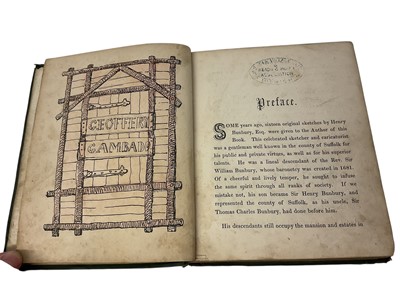 GEOFFERY
GAMBADO
Preface.
SOME years ago, sixteen original sketches by Henry
Bunbury, Esq. were given to the Author of this
Book. This celebrated sketcher and caricaturist
was a gentleman well known in the county of Suffolk for
his public and private virtue, as well as for his superior
talents. He was a lineal descendant of the Rev. Sir
William Bunbury, whose baronetcy was created in 1681.
Of a cheerful and lively temper, he sought to infuse
the same spirit through all ranks of society. If we
mistake not, his son became Sir Henry Bunbury, and
represented the county of Suffolk, as his uncle, Sir
Thomas Charles Bunbury, had done before him.
His descendants still occupy the mansion and estates in